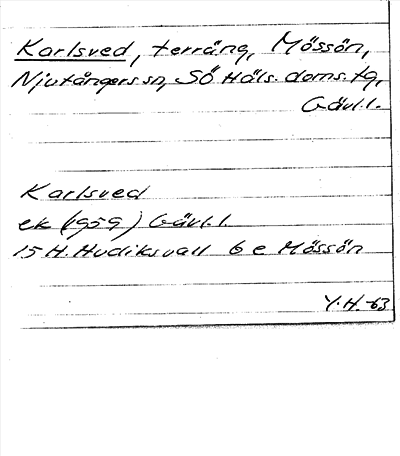 Karlsved, terräng, Mössön,
Njutångers sn, SÖ Häls. doms. tg,
Gävl. l.
Karlsved
ek (1959) Gävl. l.
15 H. Hudiksvall 6 e Mössön
Y. H. -63